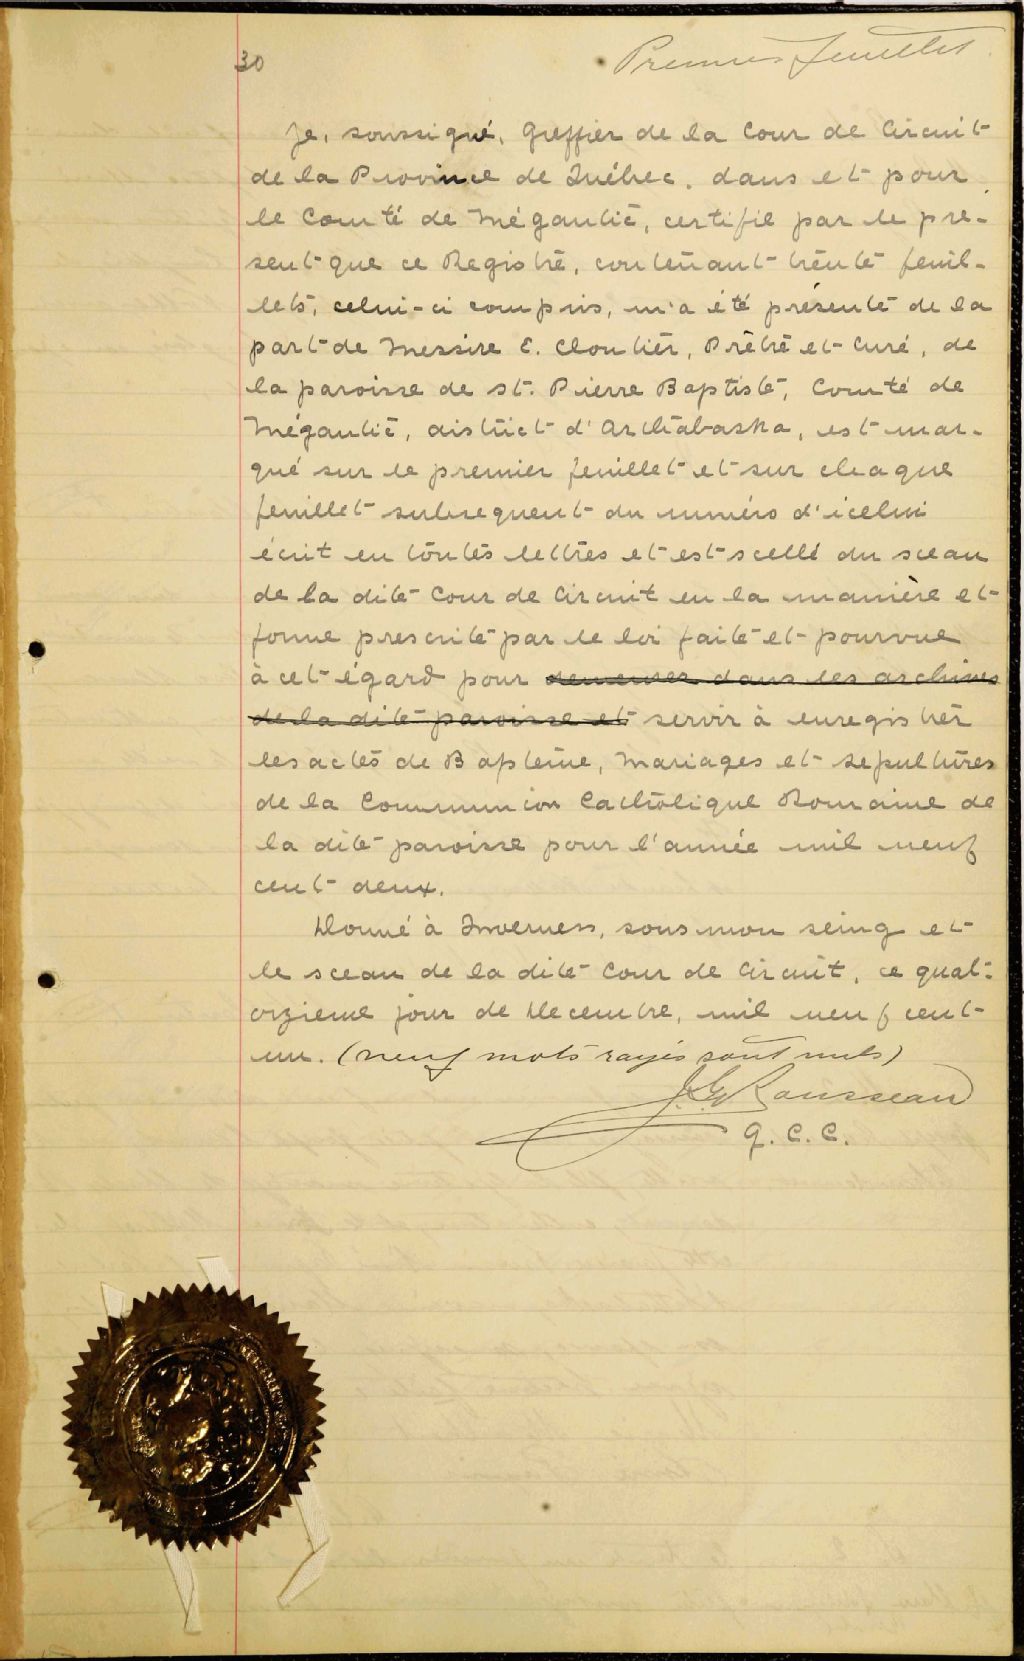 30
Premier feuillet.
Je, soussigné, Greffier de la Cour de Circuit
de la Province de Québec, dans et pour
le Comté de Mégantic, certifie par le pré-
sent que ce Registre, contenant trente feuil-
lets, celui-ci compris, m'a été présenté de la
part de Messire E. Cloutier, Prêtre et Curé, de
la paroisse de St. Pierre Baptiste, Comté de
Mégantic, district d'Arthabaska, est mar-
qué sur le premier feuillet et sur chaque
feuillet subsequent du numéro d'icelui
écrit en toutes lettres et est scellé du sceau
de la dite Cour de Circuit en la manière et
forme prescrite par le loi faite et pourvue
à cet égard pour demeurer dans les archives
de la dite paroisse et servir à enregistrer
les actes de Baptême, Mariages et Sepultures
de la Communion Catholique Romaine de
la dite paroisse pour l'année mil neuf
cent deux.
Donné à Inverness, sous mon seing et
le sceau de la dite Cour de Circuit, ce quat-
orzieme jour de Decembre, mil neuf cent
un. (neuf mots rayés sont nuls)
J. G. Rousseau
G. C. C.